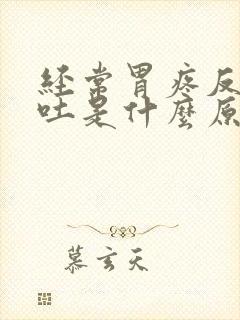 经常胃疼反
吐是什麼原
慕玄天